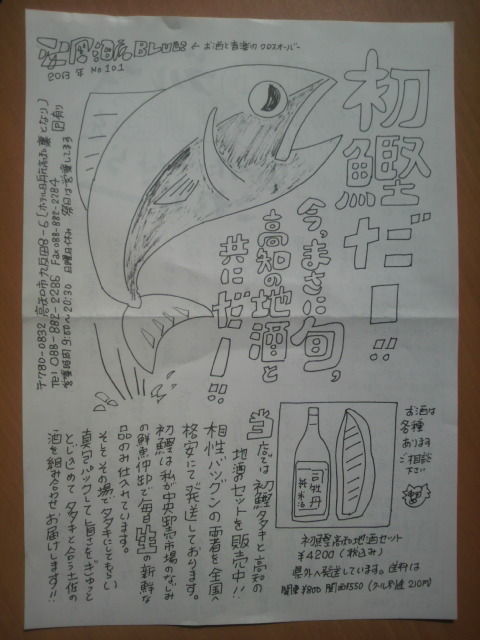 酒BLUES ← お酒と音楽のクロスオーバー
2013年 No.101
初鰹だー!!
今、まさに旬。
高知の地酒と
共にだー!!
〒780-0832 高知市九反田8-6
Tel 088-882-2286 Fax 088-882-2284
営業時間 9:00〜20:30 日曜日休み 祭日は営業してます
お酒は
各種
あります
ご相談
下さい
司牡丹
純米酒
初鰹高知地酒セット
¥4200(税込み)
県外へ発送しています。送料は
関東¥800 関西¥550 (クール別途210円)
当店では初鰹タタキと高知の
地酒のセットを販売中!!
相性バツグンの両者を全国へ
格安にて発送しております。
初鰹は私が中央卸売市場のなじみ
の鮮魚仲卸で毎日の新鮮な
品のみ仕入れてます。
そしてその場でタタキにしてもらい
真空パックして旨さをぎゅっと
とじこめてタタキと合う土佐の
酒を組み合わせお届けします!!